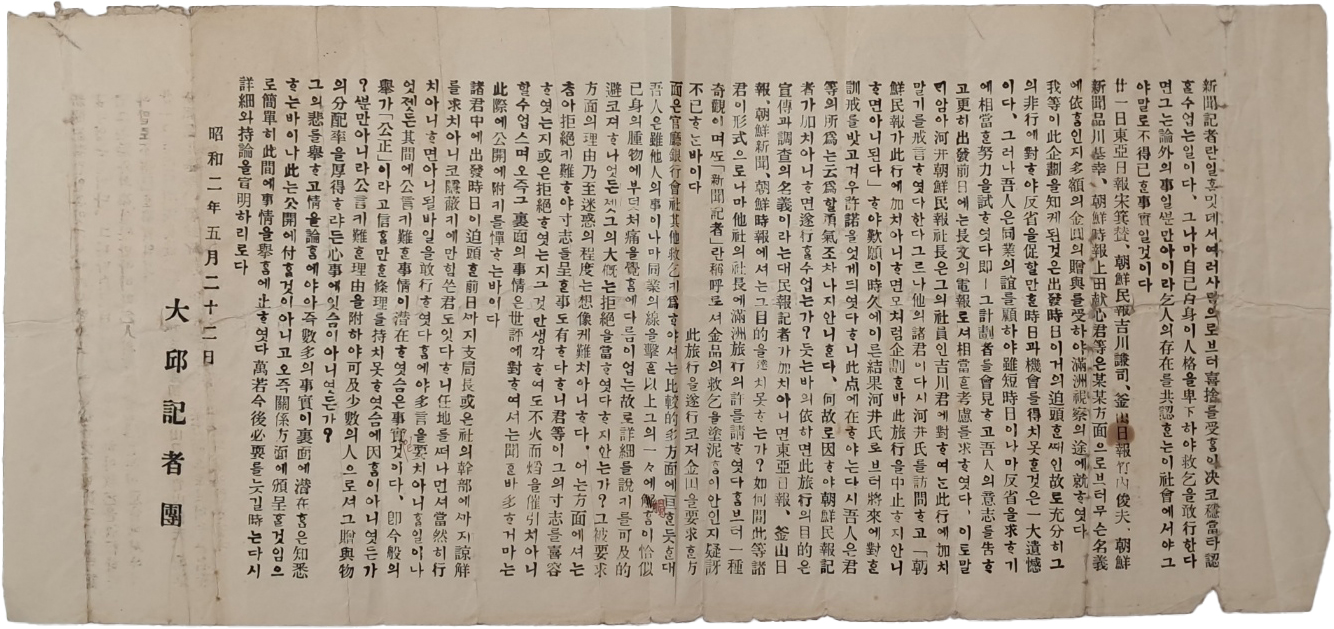 新聞記者란일홈밋데서여러사람으로브터喜捨를受홈이决코穩當타認
홀수업는일이다、그나마自己自身이人格을卑下하야救乞을敢行한다
면그는論外의事일뿐만아이라乞人의存在를共認하는이社會에서야그
야말로不得已한事實일것이다
廿一日東亞日報宋箕贊、朝鮮民報吉川謙司、釜山日報竹内俊夫、朝鮮
新聞品川基幸、朝鮮時報上田献心君等은某某方面으로브터무슨名義
에依홈인지多額의金圓의贈與를受하야滿洲視察의途에就하엿다
我等이此企劃을知케된것은出發時日이거의迫頭한때인故로充分히그
의非行에對하야反省을促할만한時日과機會를得치못한것은一大遺憾
이다、그러나吾人은同業의誼를顧하야雖短時日이나마反省을求하기
에相當한努力을試하엿다即―그計劃者를會見하고吾人의意志를告하
고更히出發前日에는長文의電報로셔相當한考慮를求하엿다、이로말
미암아河井朝鮮民報社長은그의社員인吉川君에對하여는此行에加치
말기를戒言하엿다한다그르나他의諸君이다시河井氏를訪問하고「朝
鮮民報가此行에加치아니하면모처럼企劃한바此旅行을中止하지안니
하면아니된다」하야歎願이時久에이른結果河井氏로브터將來에對한
訓戒를밧고겨우許諾을엇게되엿다하니此点에在하야는다시吾人은君
等의所爲는云爲할勇氣조차나지안니한다、何故로因하야朝鮮民報記
者가加치아니하면遂行홀수업는가?듯는바의依하면此旅行의目的은
宣傳과調查의名義이라는대民報記者가加치아니면東亞日報、釜山日
報、朝鮮新聞、朝鮮時報에셔는그目的을達치못하는가?如何間此等諸
君이形式으로나마他社의社長에滿洲旅行의許를請하엿다홈브터一種
奇觀이며또「新聞記者」란稱呼로셔金品의救乞을塗泥홈이안인지疑訝
不已하는바이다
此旅行을遂行코져金圓을要求한方
面은官廳銀行會社其他救乞키爲하야셔는比較的多方面에亘한듯한대
吾人은雖他人의事이나마同業의線을擊한以上그의一々에解홈이恰似
已身의腫物에부덧처痛을覺홈에다름이업는故로詳細를說키를可及的
避코져하나엇든쟷그의大槪는拒絕을當하엿다하지안는가?그被要求
方面의理由乃至迷惑의程度는想像케難치아니하다、어는方面에셔는
참아拒絕키難하야寸志를呈한事도有하다하니君等이그의寸志를喜容
하엿는지或은拒絕하엿는지그것만생각하여도不火而燔을催引치아니
할수업스며오즉그裏面의事情은世評에對하여셔는聞한바多하거마는
此際에公開에附키를憚하는바이다
諸君中에出發時日이迫頭한前日까지支局長或은社의幹部에까지諒解
를求치아니코隱蔽키에만힘쓴君도잇다하니任地를떠나면셔當然히行
치아니하면아니될바일을敢行하엿다홈에야多言을要치아니홀일이나
엇젯든其間에公言키難한事情이潜在하엿슴은事實것이다、卽今般의
擧가「公正」이라고信홀만한條理를持치못하엿슴에因홈이아니엿든가
?뿐만아니라公言키難한理由을附하야可及少數의人으로셔그贈與物
의分配率을厚得하랴든心事에잇슴이아니엿든가?
그의悲를擧하고情을論홈에야아즉數多의事實이裏面에潜在홈은知悉
하는바이나此는公開에付홀것이아니고오즉關係方面에頒呈홀것임으
로簡單히此間에事情을擧홈에止하엿다萬若今後必要를늣길時는다시
詳細와持論을宣明하리로다
昭和二年五月二十二日
大邱記者團